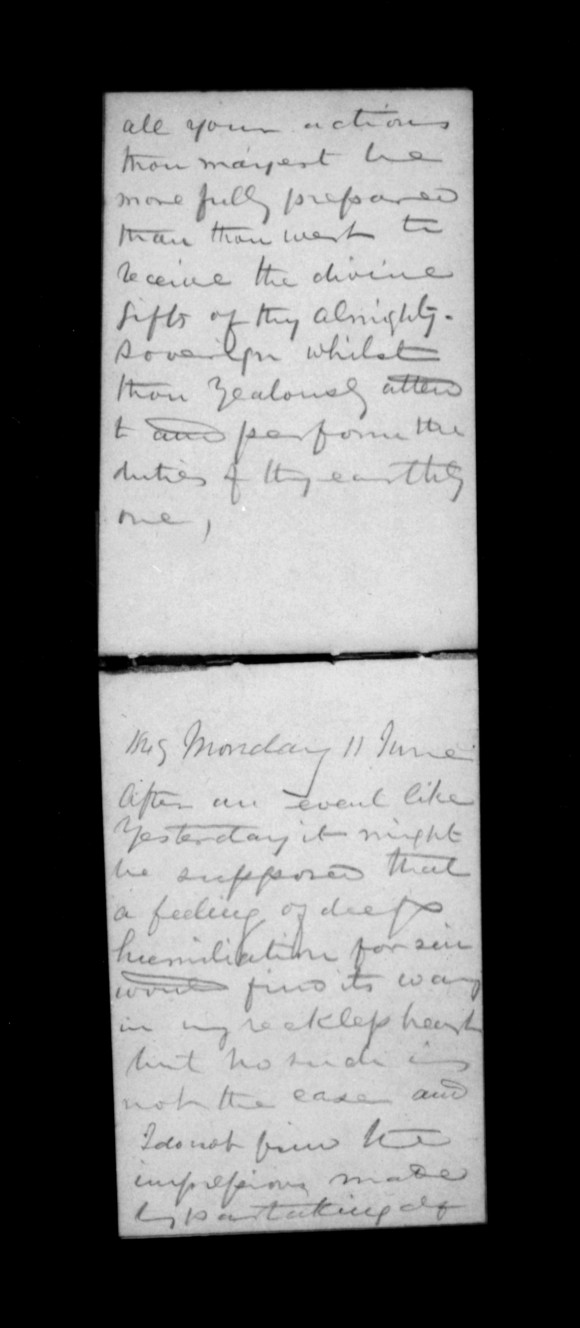 all your actions
thou mayest be
more fully prepared
than thou wert to
receive the divine
Gifts of thy Almighty.
Sovereign whilst
thou Zealously atten
t and perform the
duties of thy earthly
one,
Monday 11 June
After an event like
Yesterday it might
be supposed that
a feeling of deep
humiliation for sin
would find its way
in my reckless heart
but no such is
not the case and
I do not find the
impressions made
by partaking of